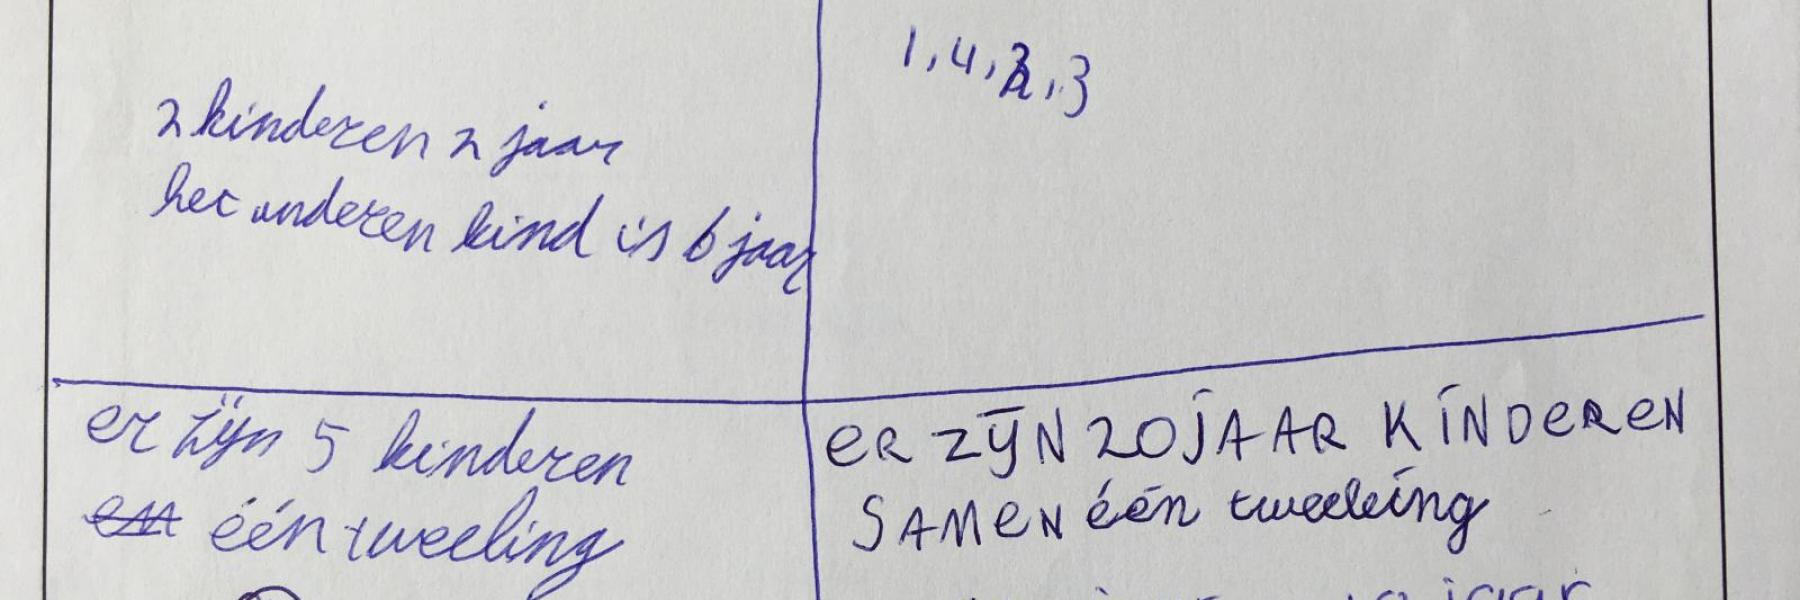 2 kinderen 2 jaar
het anderen kind is 6 jaar
1,4,2,3
er zijn 5 kinderen
en één tweeling
ER ZIJN 20 JAAR KINDEREN
SAMEN één tweeling
jaar